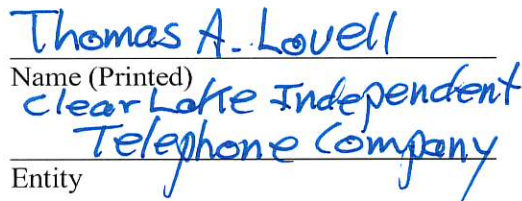 Thomas A. Lovell
Name (Printed)
Clear Lake Independent
Telephone Company
Entity